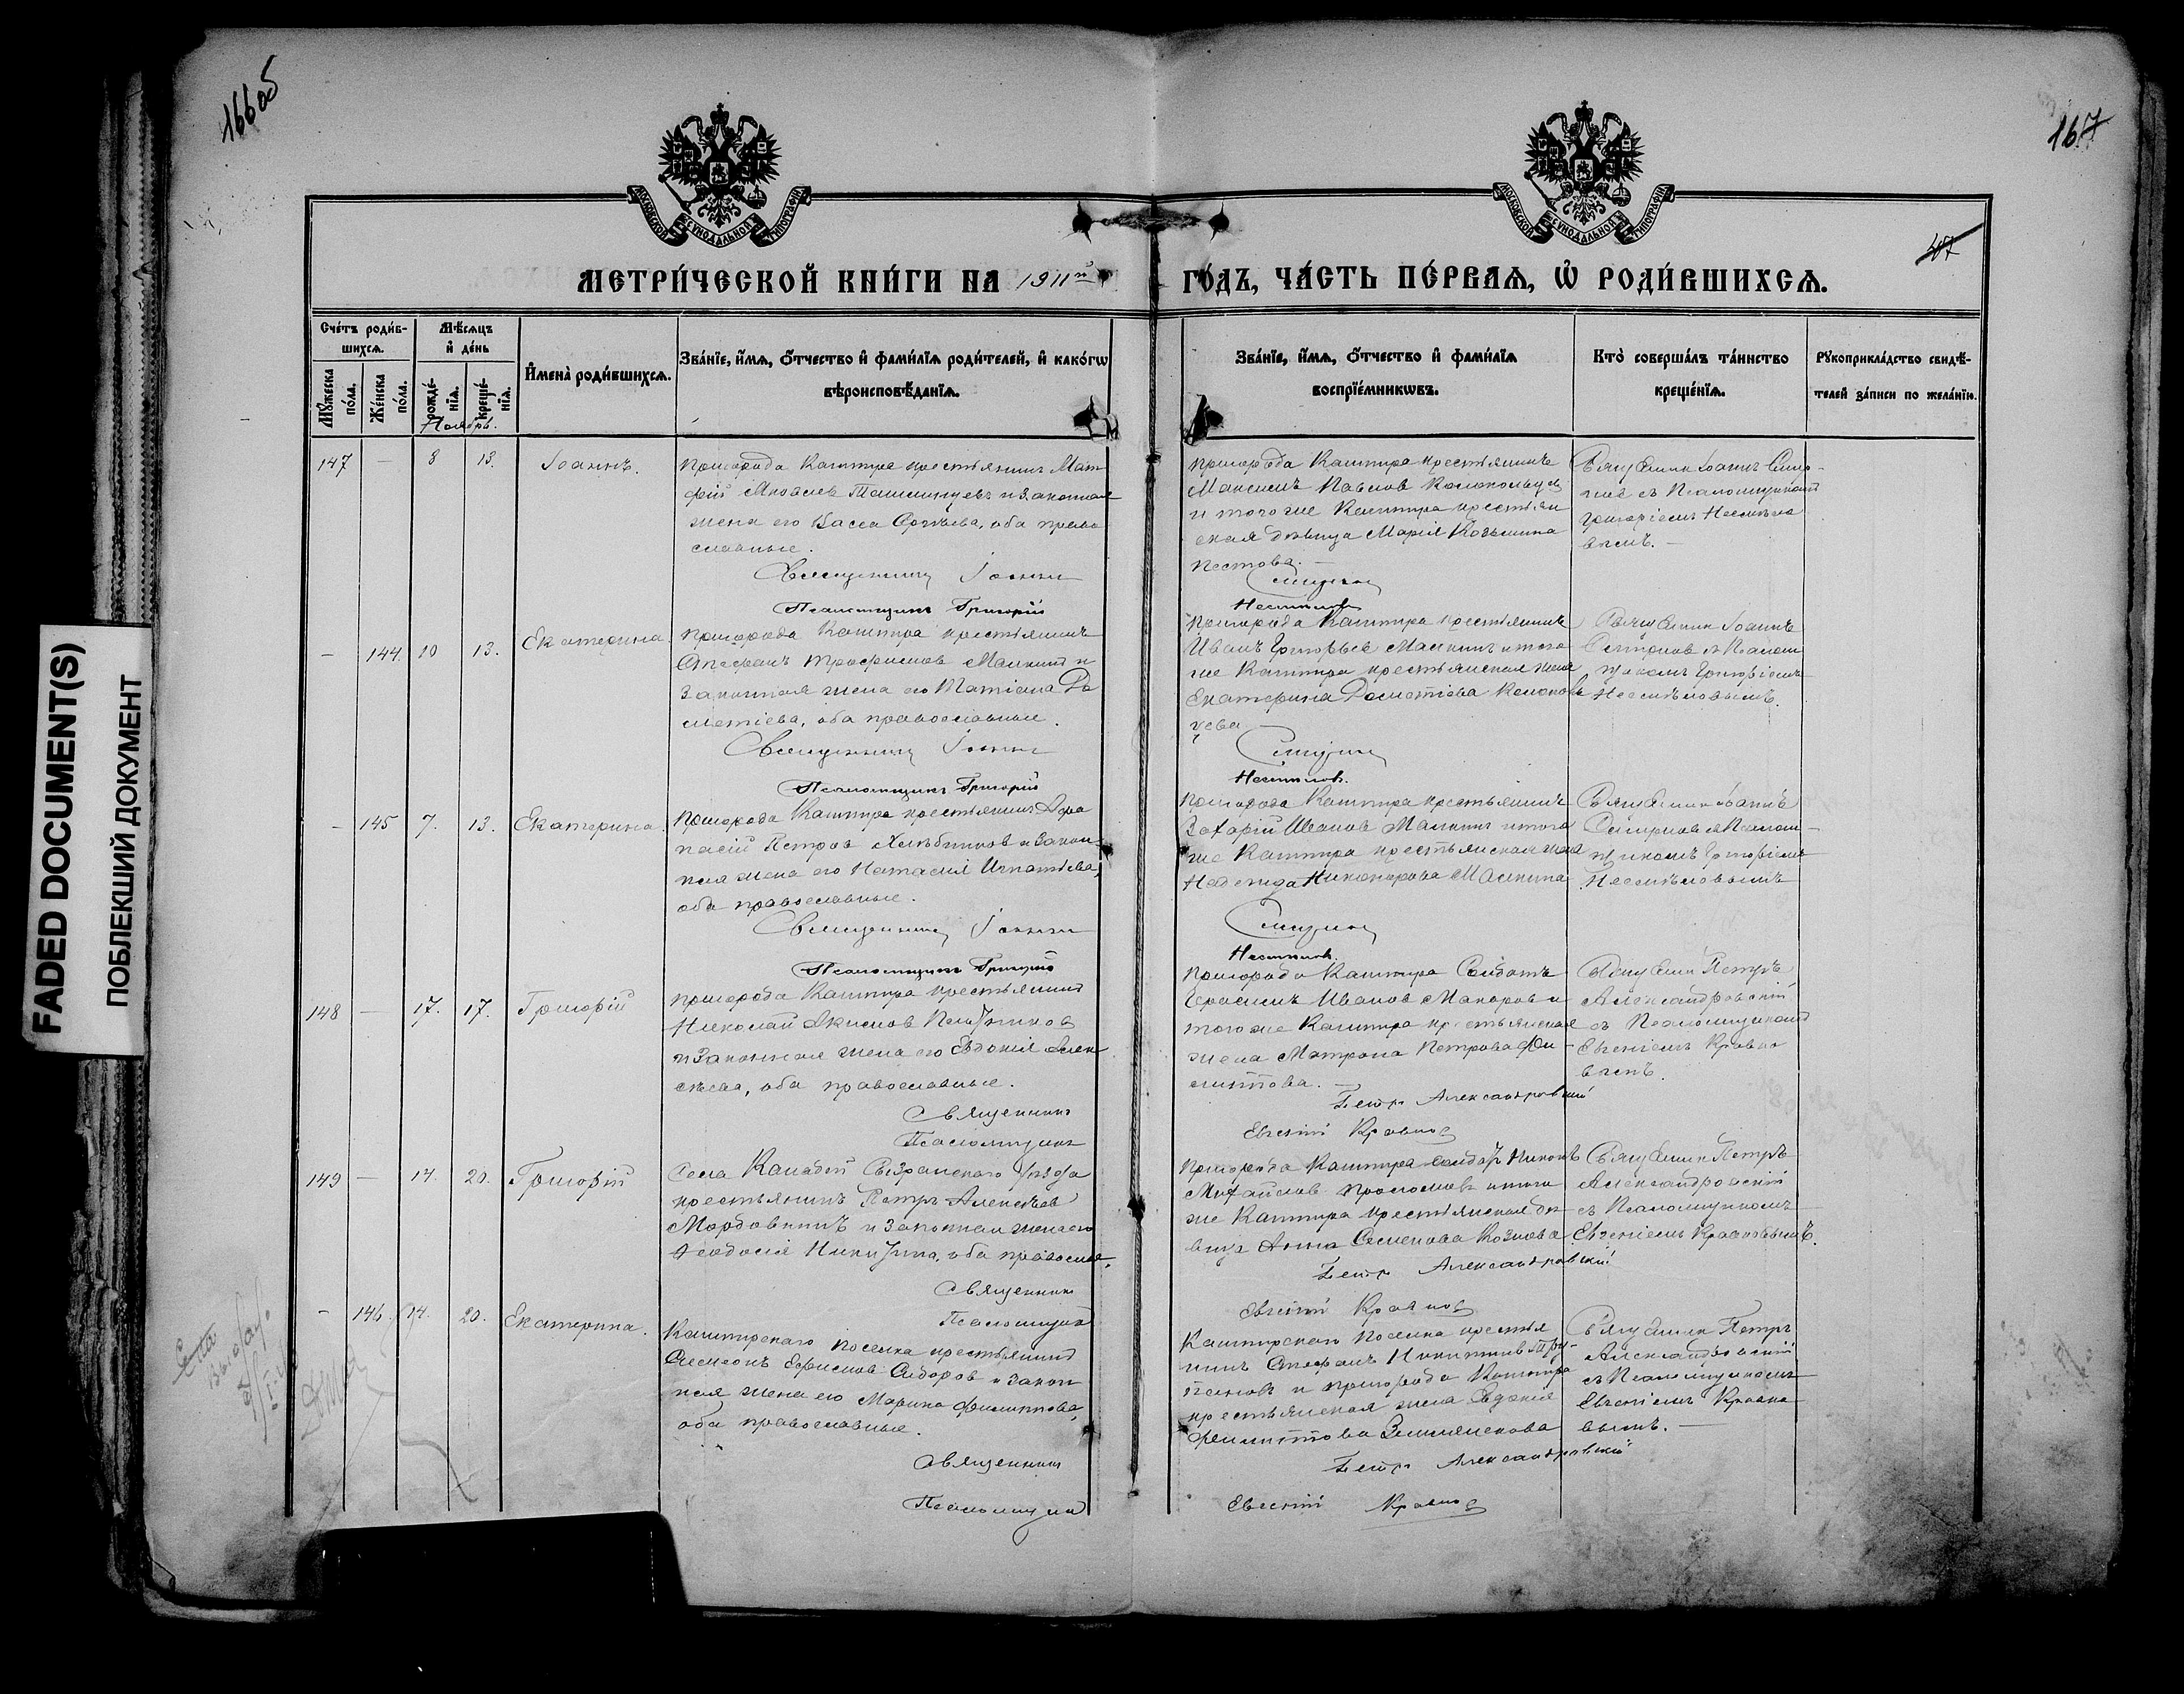 166об
167
МОСКОВСКОЙ СУНОДАЛЬНОЙ ТИПОГРАФІИ
МОСКОВСКОЙ СУНОДАЛЬНОЙ ТИПОГРАФІИ
МЕТРИ́ЧЕСКОЙ КНИ́ГИ НА 1911й ГО́ДЪ, ЧА́СТЬ ПЕ́РВАѦ, Ѡ҆ РОДИ́ВШИХСѦ.
Сче́тъ роди́в-
шихсѧ.
Мꙋ́жеска по́ла.
Же́нска по́ла.
Мѣ́сѧцъ и҆ де́нь
рожде́-
нїѧ.
креще́-
нїѧ.
Ноябрь.
И҆мена̀ роди́вшихсѧ.
Зва́нїе, и҆́мѧ, ѻ҆́тчество и҆ фами́лїѧ роди́телей, и҆ како́гѡ
вѣроисповѣ́данїѧ.
Зва́нїе, и҆́мѧ, ѻ҆́тчество и҆ фами́лїѧ
воспрїе́мникѡвъ.
Кто̀ соверша́лъ та́инство
креще́нїѧ.
Рꙋкоприкла́дство свидѣ́-
телей за́писи по жела́нїю.
147 — 8 13. Іоаннъ.
Пригорода Кашпира крестьянинъ Мат
фій Яковлев и законная
жена его Васса Сергѣева, оба право
славные.
Священникъ Іоаннъ
Псаломщикъ Григорій
пригорода Кашпира крестьянинъ
Максимъ Павлов Колокольцев
и того же Кашпира крестьян
ская дѣвица Марія Козьмина
Пестова. —
Смирнов
Несмѣлов
Священник Іоаннъ Смир-
нов съ Псаломщиком
Григоріемъ Несмѣло
вымъ. —
— 144. 10 13. Екатерина.
Пригорода Кашпира крестьянинъ
Стефанъ Трофимов Малкин и
законная жена его Татіана До
метіева, оба православные.
Священникъ Іоаннъ
Псаломщикъ Григорій
Пригорода Кашпира крестьянинъ
Иванъ Григорьев Малкинъ и того
же Кашпира крестьянская жена
Екатерина Дометіева Колоколь
цева
Смирнов
Несмѣлов.
Священник Іоаннъ
Смирнов съ Псалом
щиком Григоріемъ
Несмѣловымъ.
— 145 7. 13. Екатерина.
Пригорода Кашпира крестьянинъ Афа
насій Петров Хлѣбников и закон-
ная жена его Наталія Игнатьева,
оба православные.
Священникъ Іоаннъ
Псаломщикъ Григорій
Пригорода Кашпира крестьянинъ
Захарій Иванов Малкин и того
же Кашпира крестьянская жена
Надежда Никонорова Малкина
Смирнов
Несмѣлов.
Священник Іоаннъ
Смирнов съ Псалом-
щикомъ Григоріемъ
Несмѣловымъ
148 — 17. 17. Григорій
пригорода Кашпира крестьянин
Николай Акимов
и законная жена его Евдокія Алек
сѣева, оба православные.
Священникъ
Псаломщикъ
Пригорода Кашпира Солдатъ
Герасимъ Иванов Макаров и
того же Кашпира крестьянская
жена Матрона Петрова Фи-
липпова. —
Петр Александровскій
Евгеній Краснов
Священник Петръ
Александровскій
съ Псаломщиком
Евгеніемъ Красно
вымъ.
149 — 14. 20. Григорій
Села Канадей Сызранскаго уѣзда
крестьянинъ Петръ Алексѣев
Мордовинъ и законная жена его
Ѳеодосія Никитина, оба правосла.
Священник
Псаломщик
Пригорода Кашпира солдат Никонъ
Михайлов и того
же Кашпира крестьянская дѣ
вица Анна Семенова Козлова
Петр Александровскій
Евгеній Краснов
Священник Петръ
Александровскій
съ Псаломщикомъ
Евгеніем Красновымъ.
— 146. 14. 20. Екатерина.
Кашпирскаго поселка крестьянин
Симеонъ Ефимов Сидоров и закон
ная жена его Марина Филиппова,
оба православные.
Священник
Псаломщик
Кашпирскаго поселка крестья
нинъ Стефанъ Никитин
и пригорода Кашпира
крестьянская жена Евдокія
Филиппова
Петр Александровскій
Евгеній Краснов
Священник Петръ
Александровскій
съ Псаломщиком
Евгеніем Красно
вымъ. —
FADED DOCUMENT(S)
ПОБЛЕКШИЙ ДОКУМЕНТ